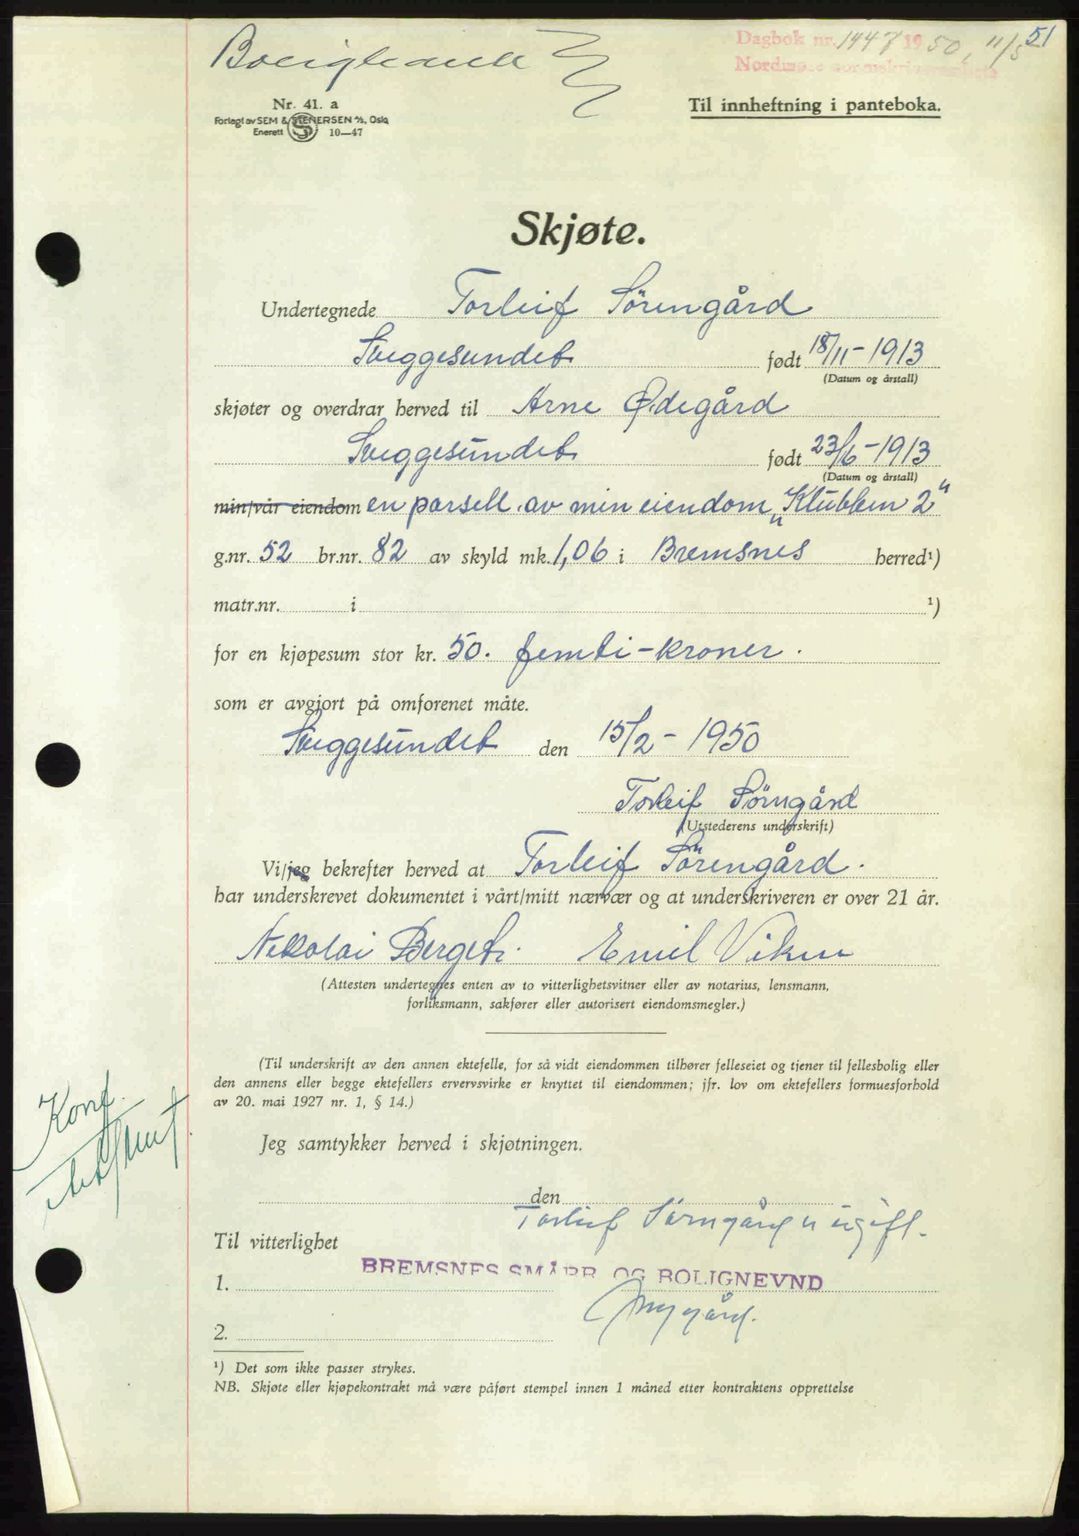 51
Dagbok nr. 1447 1950, 11/5
Nordmøre sorenskriverembete
Nr. 41. a
Forlagt av SEM & STENERSEN A/S, Oslo
Enerett 10—47
Til innheftning i panteboka.
Skjøte.
Undertegnede Torleif Sörengård
Sveggesundet født 18/11-1913
(Datum og årstall)
skjøter og overdrar herved til Arne Ødegård
Sveggesundet født 23/6-1913
(Datum og årstall)
min/vår eiendom en parsell av min eiendom „Klubben 2"
g.nr. 52 br.nr. 82 av skyld mk. 1,06 i Bremsnes herred¹)
matr.nr. i ¹)
for en kjøpesum stor kr. 50. femti-kroner.
som er avgjort på omforenet måte.
Sveggesundet den 15/2-1950
Torleif Sörngård
(Utstederens underskrift)
Vi/jeg bekrefter herved at Torleif Sörengård.
har underskrevet dokumentet i vårt/mitt nærvær og at underskriveren er over 21 år.
Nikolai Berget. Emil Viken
(Attesten undertegnes enten av to vitterlighetsvitner eller av notarius, lensmann,
forliksmann, sakfører eller autorisert eiendomsmegler.)
(Til underskrift av den annen ektefelle, for så vidt eiendommen tilhører felleseiet og tjener til fellesbolig eller
den annens eller begge ektefellers ervervsvirke er knyttet til eiendommen; jfr. lov om ektefellers formuesforhold
av 20. mai 1927 nr. 1, § 14.)
Konf.
Jeg samtykker herved i skjøtningen.
den
Torleif Sörngård er ugift.
Til vitterlighet
BREMSNES SMÅBR. OG BOLIGNEVND
1.
2.
¹) Det som ikke passer strykes.
NB. Skjøte eller kjøpekontrakt må være påført stempel innen 1 måned etter kontraktens opprettelse